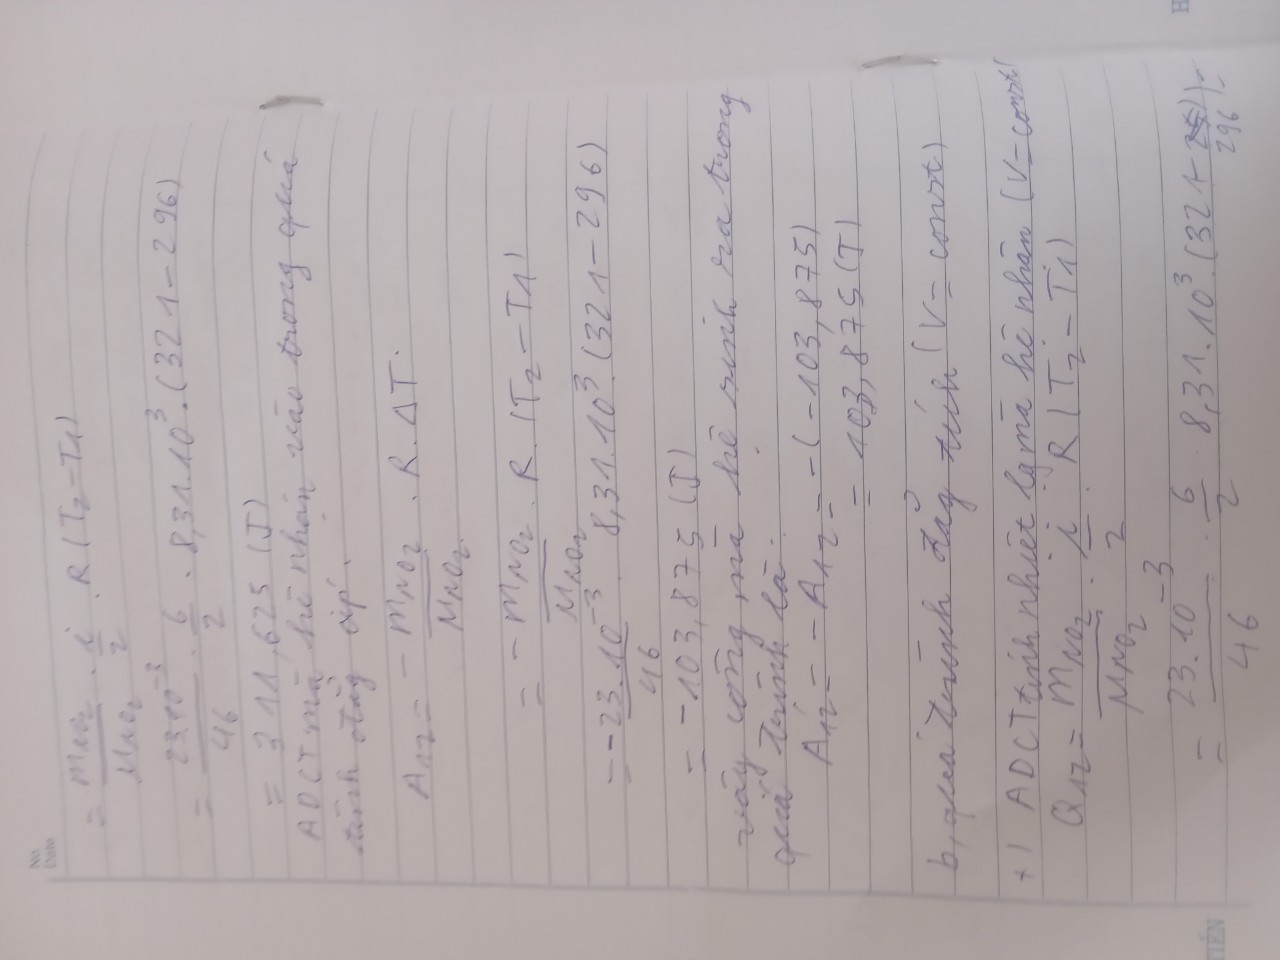 No.
Date
= mNO₂/μNO₂ . i/2 . R(T₂ – T1)
= 23.10⁻³/46 . 6/2 . 8,31.10³.(321 – 296)
= 311,625 (J)
ADCT mà hệ nhận vào trong quá
tình đẳng áp.
A12 = – mNO₂/μNO₂ . R.ΔT.
= – mNO₂/μNO₂ . R.(T₂ – T1)
= –23.10⁻³/46 . 8,31.10³.(321 – 296)
= –103,875 (J)
vậy công mà hệ sinh ra trong
quá trình là:
A'12 = –A12 = –(–103,875)
= 103,875 (J)
b, quá trình đẳng tích (V= const)
+) ADCT tính nhiệt lg mà hệ nhận (V= const)
Q12 = mNO₂/μNO₂ . i/2 . R(T₂ – T1)
= 23.10⁻³/46 . 6/2 . 8,31.10³(321 – 296) =
TIẾN
H